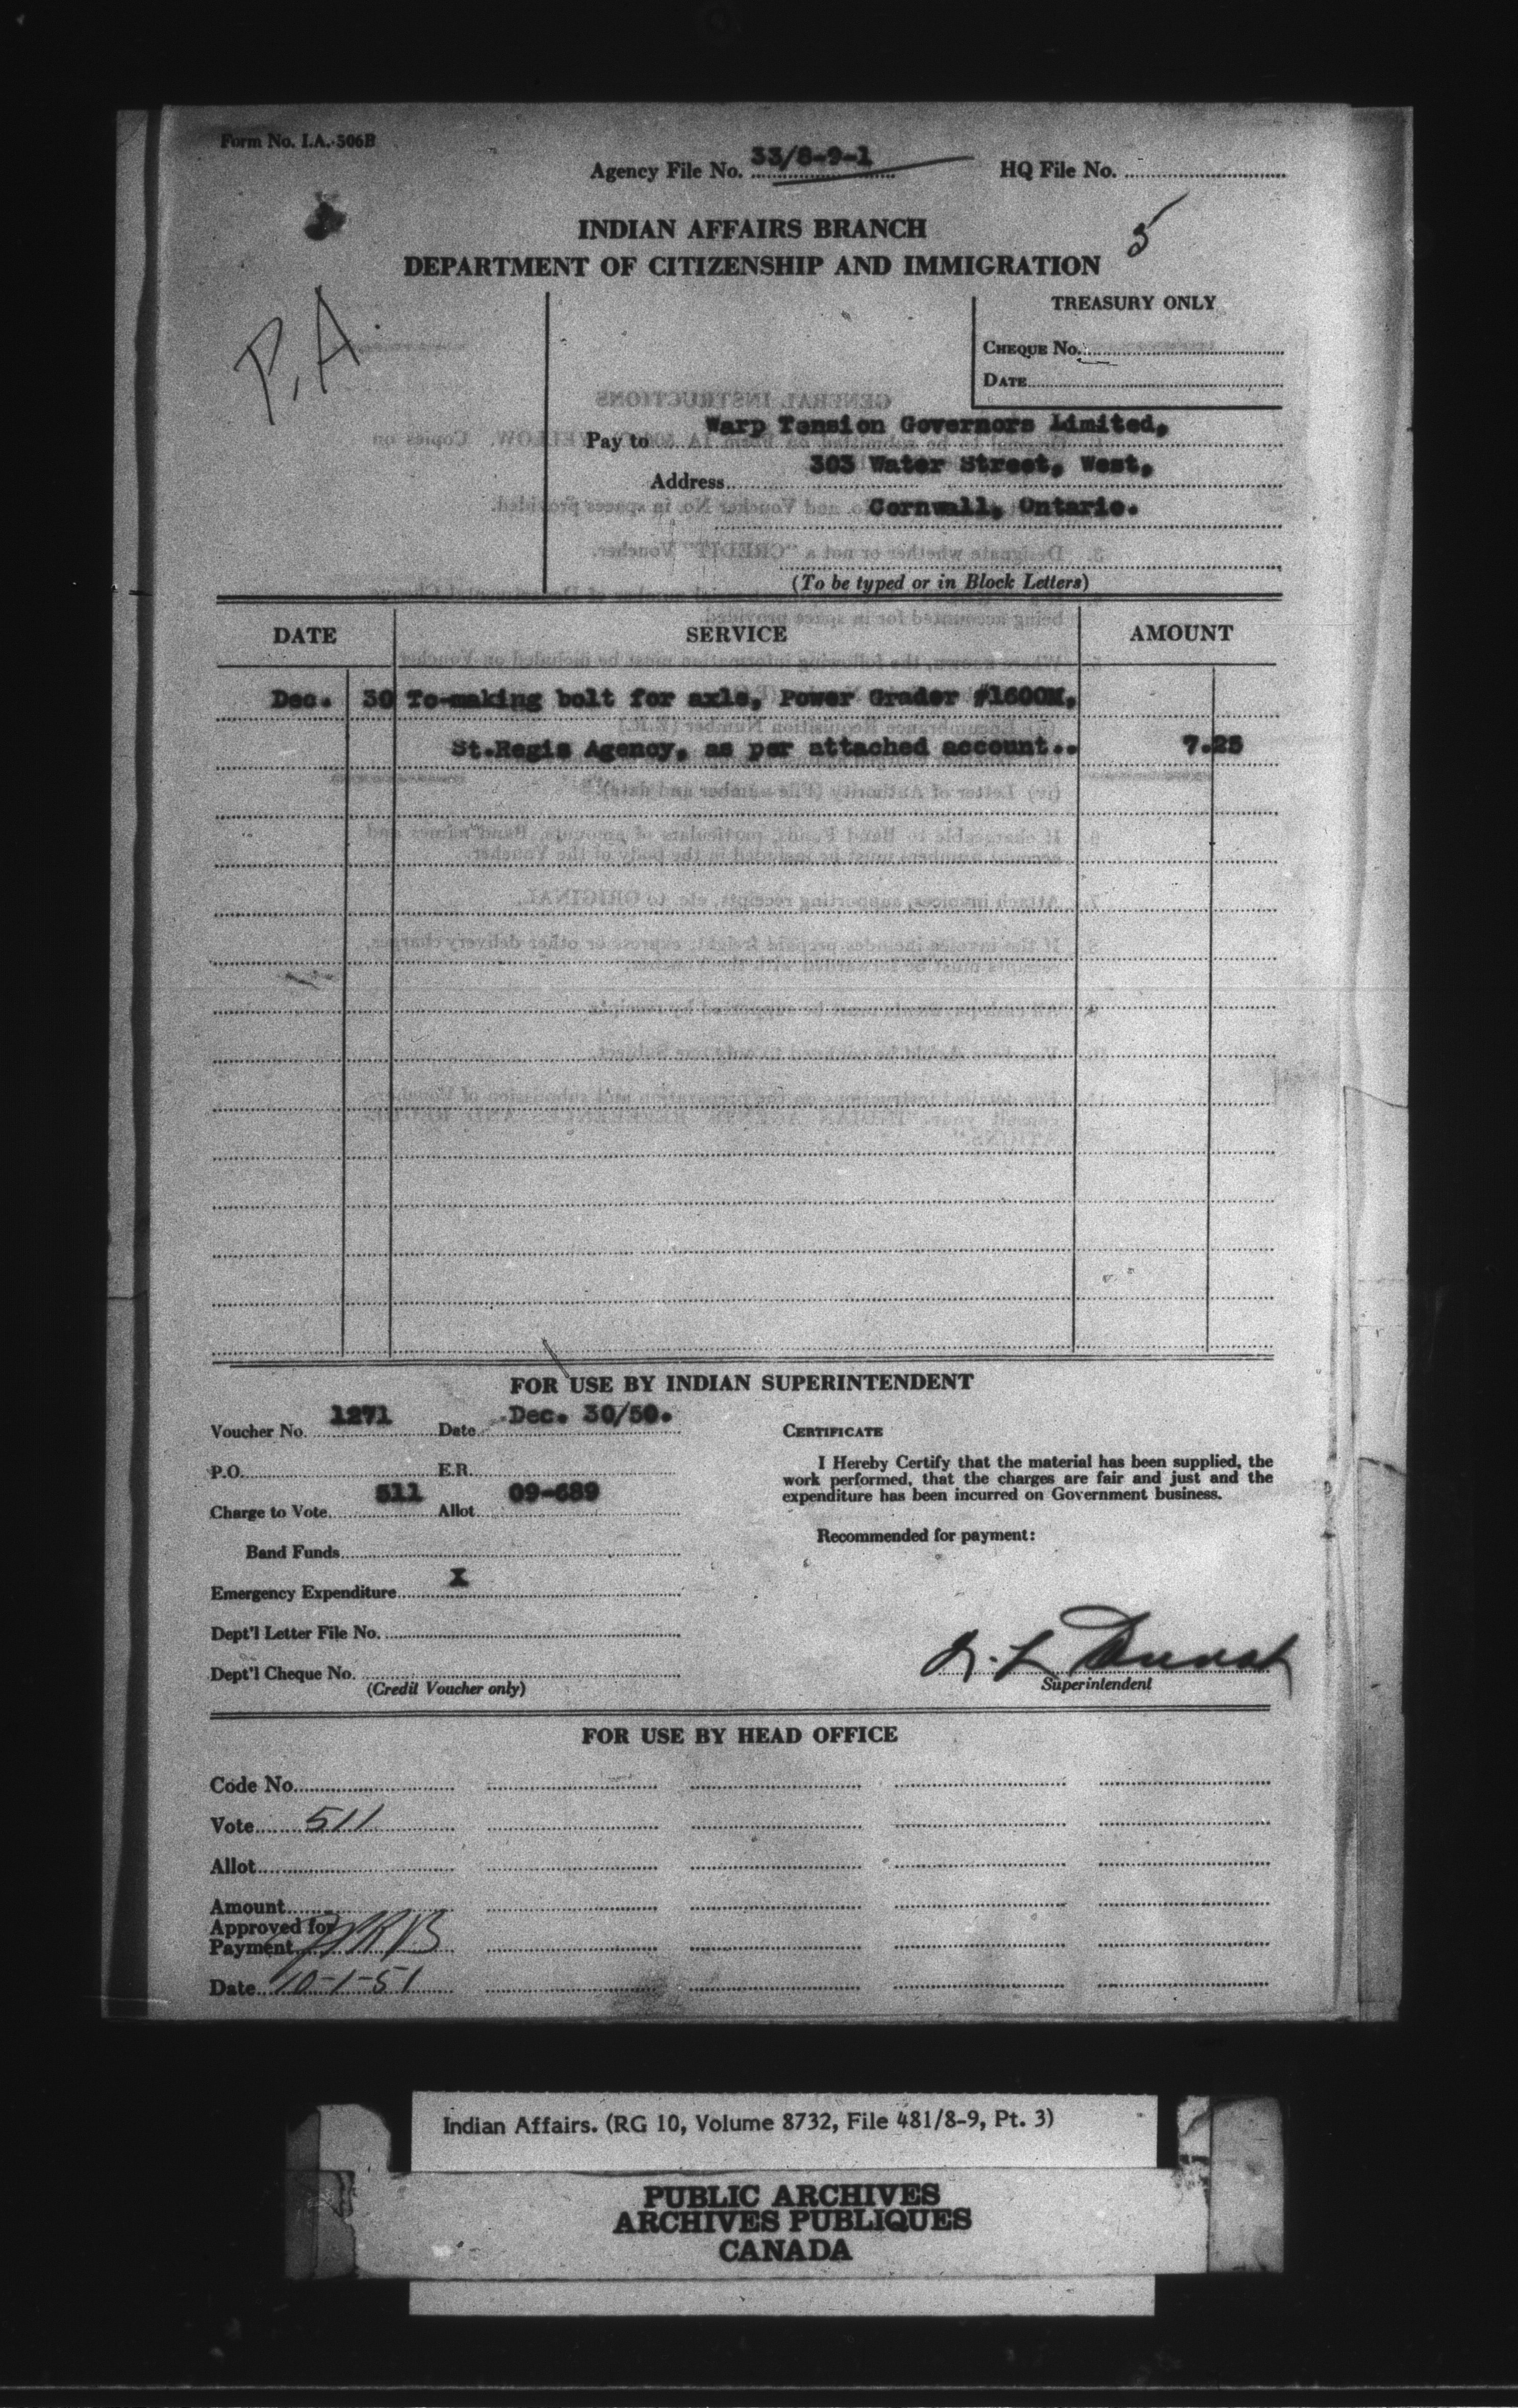 Form No. I.A. 506B
Agency File No. 33/8-9-1 HQ File No.
5
INDIAN AFFAIRS BRANCH
DEPARTMENT OF CITIZENSHIP AND IMMIGRATION
P.A.
TREASURY ONLY
CHEQUE No.
DATE
Pay to Warp Tension Governors Limited,
Address 303 Water Street, West,
Cornwall, Ontario.
(To be typed or in Block Letters)
DATE SERVICE AMOUNT
Dec. 30 To making bolt for axle, Power Grader #1600M,
St.Regis Agency, as per attached account.. 7.25
FOR USE BY INDIAN SUPERINTENDENT
Voucher No. 1271 Date Dec. 30/50.
P.O. E.R.
Charge to Vote 511 Allot 09-689
Band Funds
Emergency Expenditure X
Dept'l Letter File No.
Dept'l Cheque No.
(Credit Voucher only)
CERTIFICATE
I Hereby Certify that the material has been supplied, the
work performed, that the charges are fair and just and the
expenditure has been incurred on Government business.
Recommended for payment:
Superintendent
FOR USE BY HEAD OFFICE
Code No.
Vote 511
Allot
Amount
Approved for
Payment
Date 10-1-51
Indian Affairs. (RG 10, Volume 8732, File 481/8-9, Pt. 3)
PUBLIC ARCHIVES
ARCHIVES PUBLIQUES
CANADA